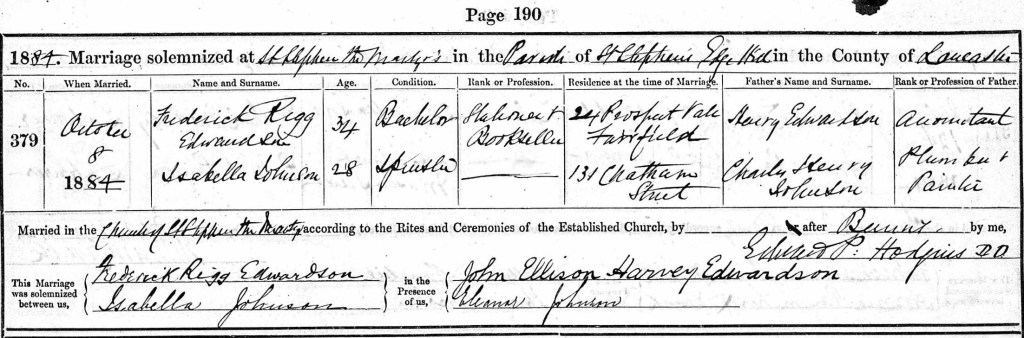 Page 190
1884. Marriage solemnized at St Stephen the Martyr's in the Parish of St Stephens Edge Hill in the County of Lancaster
No. When Married. Name and Surname. Age. Condition. Rank or Profession. Residence at the time of Marriage. Father's Name and Surname. Rank or Profession of Father.
379 October 8 1884
Frederick Rigg Edwardson 34 Bachelor Stationer & Bookseller 24 Prospect Vale Fairfield Henry Edwardson Accountant
Isabella Johnson 28 Spinster 131 Chatham Street Charles Henry Johnson Plumber & Painter
Married in the Church of St Stephen the Martyr according to the Rites and Ceremonies of the Established Church, by or after Banns by me,
Edward P. Hodgins
This Marriage was solemnized between us, Frederick Rigg Edwardson Isabella Johnson in the Presence of us, John Ellison Harvey Edwardson Eleanor Johnson